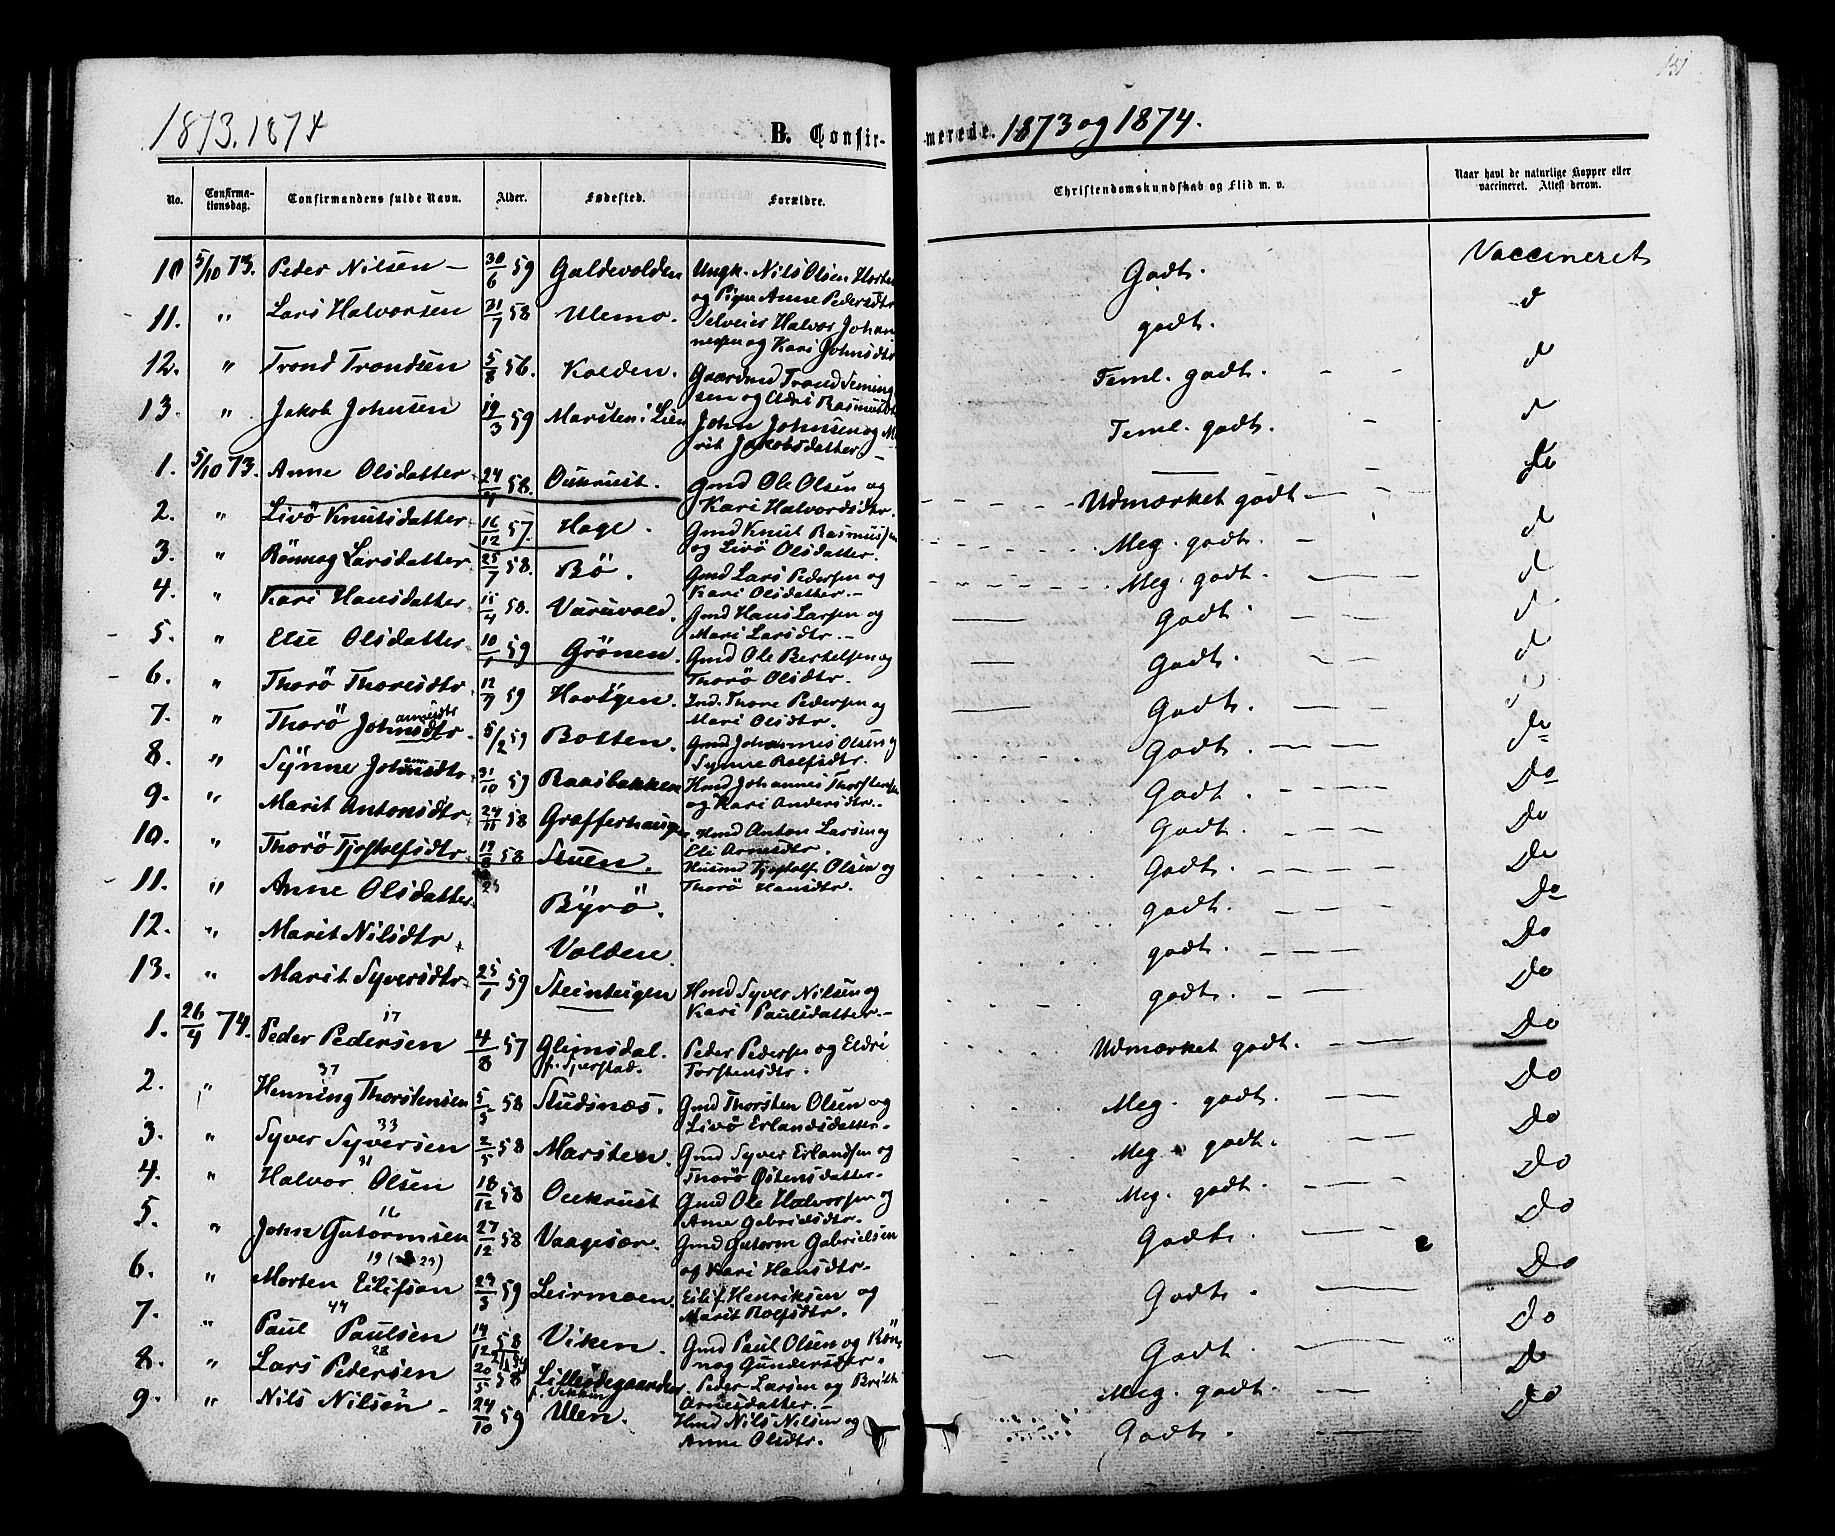 151
1873. 1874
B. Confir-
-merede. 1873 og 1874.
No. Confirma-tionsdag. Confirmandens fulde Navn. Alder. Fødested. Forældre. Christendomskundskab og Flid m. v. Naar havt de naturlige Kopper eller vaccineret. Attest derom.
10 5/10 73. Peder Nilsen – 30/6 59 Galdevolden Ungk. Nils Olsen og Pige Anne Pedersdtr Godt. Vaccineret
11. " Lars Halvorsen 31/7 58 Ulemo. Selveier Halvor Johannesen og Kari Johnsdtr godt. d
12. " Trond Trondsen 5/8 56. Kolden. Gaardmd Trond Femingsen og Eldri Rasmusdtr Teml. godt. d
13. " Jakob Johnsen 19/3 59 Marsten i Lien John Johnsen og Marit Jakobsdatter – Teml. godt. d
1. 5/10 73. Anne Olsdatter 24/4 58. Oukrust. Gmd Ole Olsen og Kari Halvordsdtr. Udmærket godt Do
2. " Livö Knutsdatter 16/12 57. Hage. Gmd Knut Rasmussen og Livö Olsdatter. Meg. godt. d
3. " Rönnog Larsdatter 25/7 58. Bö. Gmd Lars Pedersen og Kari Olsdatter. – Meg. godt. d
4. " Kari Hansdatter 15/4 58. Varuvold. Gmd Hans Larsen og Mari Larsdtr. – Godt. d
5. " Else Olsdatter 10/1 59 Grönen. Gmd Ole Bertelsen og Thorö Olsdtr. Godt. d
6. " Thorö Thoresdtr 12/9 59 Havtgen. Ind. Thore Pedersen og Mari Olsdtr. Godt. d
7. " Thorö Johannesdtr. 5/2 59 Botten. Gmd Johannes Olsen og Synne Rolfsdtr. Godt. do
8. " Synne Johannsdtr 31/10 59 Raasbakken Hmd Johannes Thorstensen og Kari Andersdtr. Godt. Do
9. " Marit Antonsdtr 24/11 58 Grafferhaugen Hmd Anton Larsen og Eli Arnesdtr. Godt. Do
10. " Thorö Tjostolfsdtr. 19/8 58 Stuen. Husmd Tjostolf Olsen og Thorö Hansdtr. Godt. Do
11. " Anne Olsdatter Byrö. godt. Do
12. " Marit Nilsdtr Volden. godt. Do
13. " Marit Syversdtr 25/1 59 Steinteigen Hmd Syver Nilsen og Kari Paulsdatter. – godt. Do
1. 26/4 74. Peder Pedersen 17 4/8 57 Glimsdal. Peder Pedersen og Eldri Torstensdtr. Udmærket godt. Do
2. " Henning Thorstensen 37 5/5 58 Sludsnæs. Gmd Thorsten Olsen og Livö Erlandsdatter. Meg. godt. Do
3. " Syver Syversen 33 2/5 58 Marsten. Gmd Syver Erlandsen og Thorö Östensdatter. Meg. godt. Do
4. " Halvor Olsen 31 18/12 58 Oukrust Gmd Ole Halvorsen og Anne Gabrielsdtr. Meg. godt. Do
5. " John Gutormsen 16 27/12 58 Vaagesar. Gmd Gutorm Gabrielsen og Kari Hansdtr. Godt. Do
6. " Morten Eilifsen 19 29/3 59 Leirmoen. Eilif Henriksen og Marit Rolfsdtr. Godt. Do
7. " Paul Paulsen 44 14/12 58 Viken. Gmd Paul Olsen og Rönnog Gundersdtr. Godt. Do
8. " Lars Pedersen 28 20/5 58 Lillesdegaarden Peder Larsen og Brith Arnesdatter. – Meg. godt. Do
9. " Nils Nilsen 2 24/10 59 Ulen. Hmd Nils Nilsen og Anne Olsdtr. Godt. Do